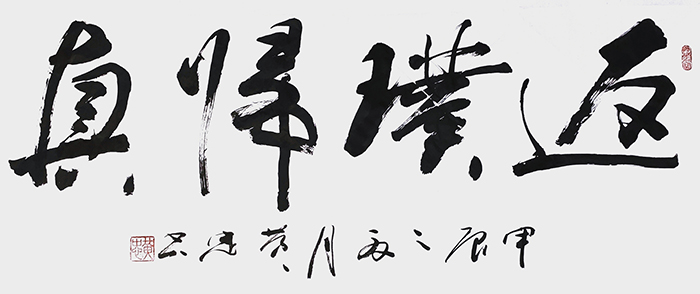 返璞帰真
甲辰之夏月黄忠书